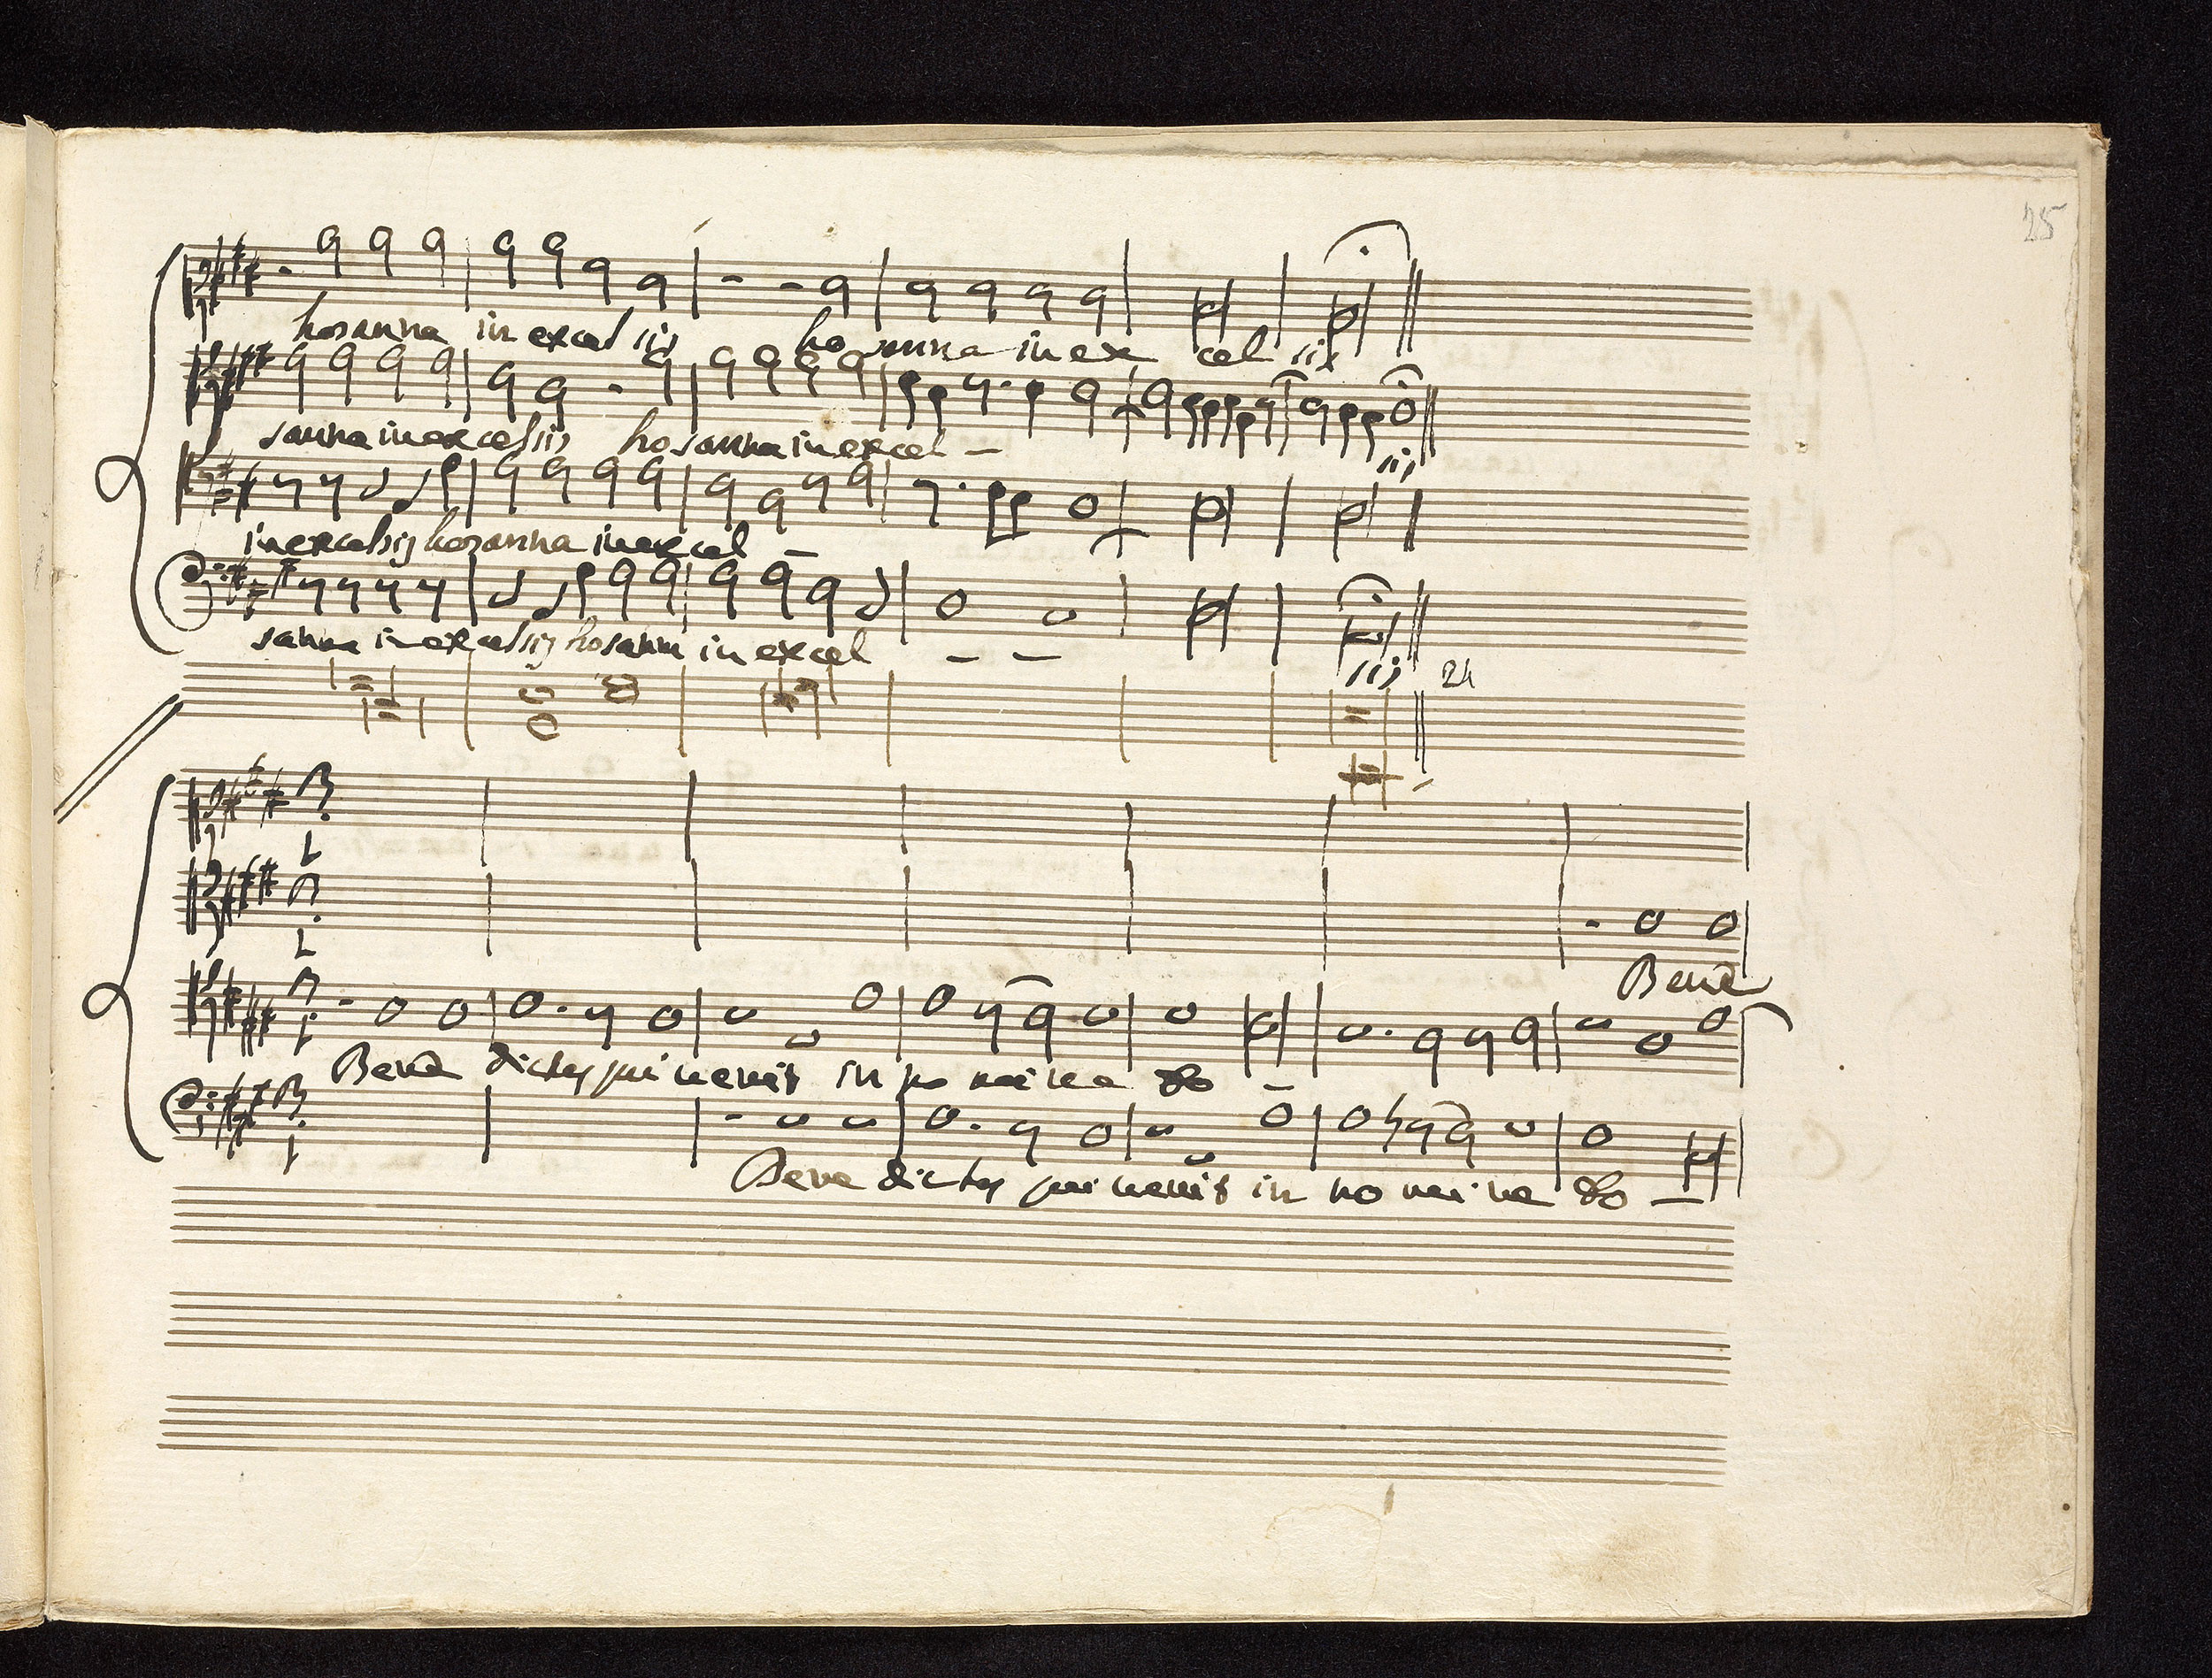 25
hosanna in excelsis ho sanna in ex cel sis
sanna in excelsis hosanna in excel - sis
in excelsis hosanna in excel -
sanna in excelsis hosanna in excel - - sis
24
Bene
Bene dictus qui venit in no mi ne do -
Bene dictus qui venit in no mi ne do -